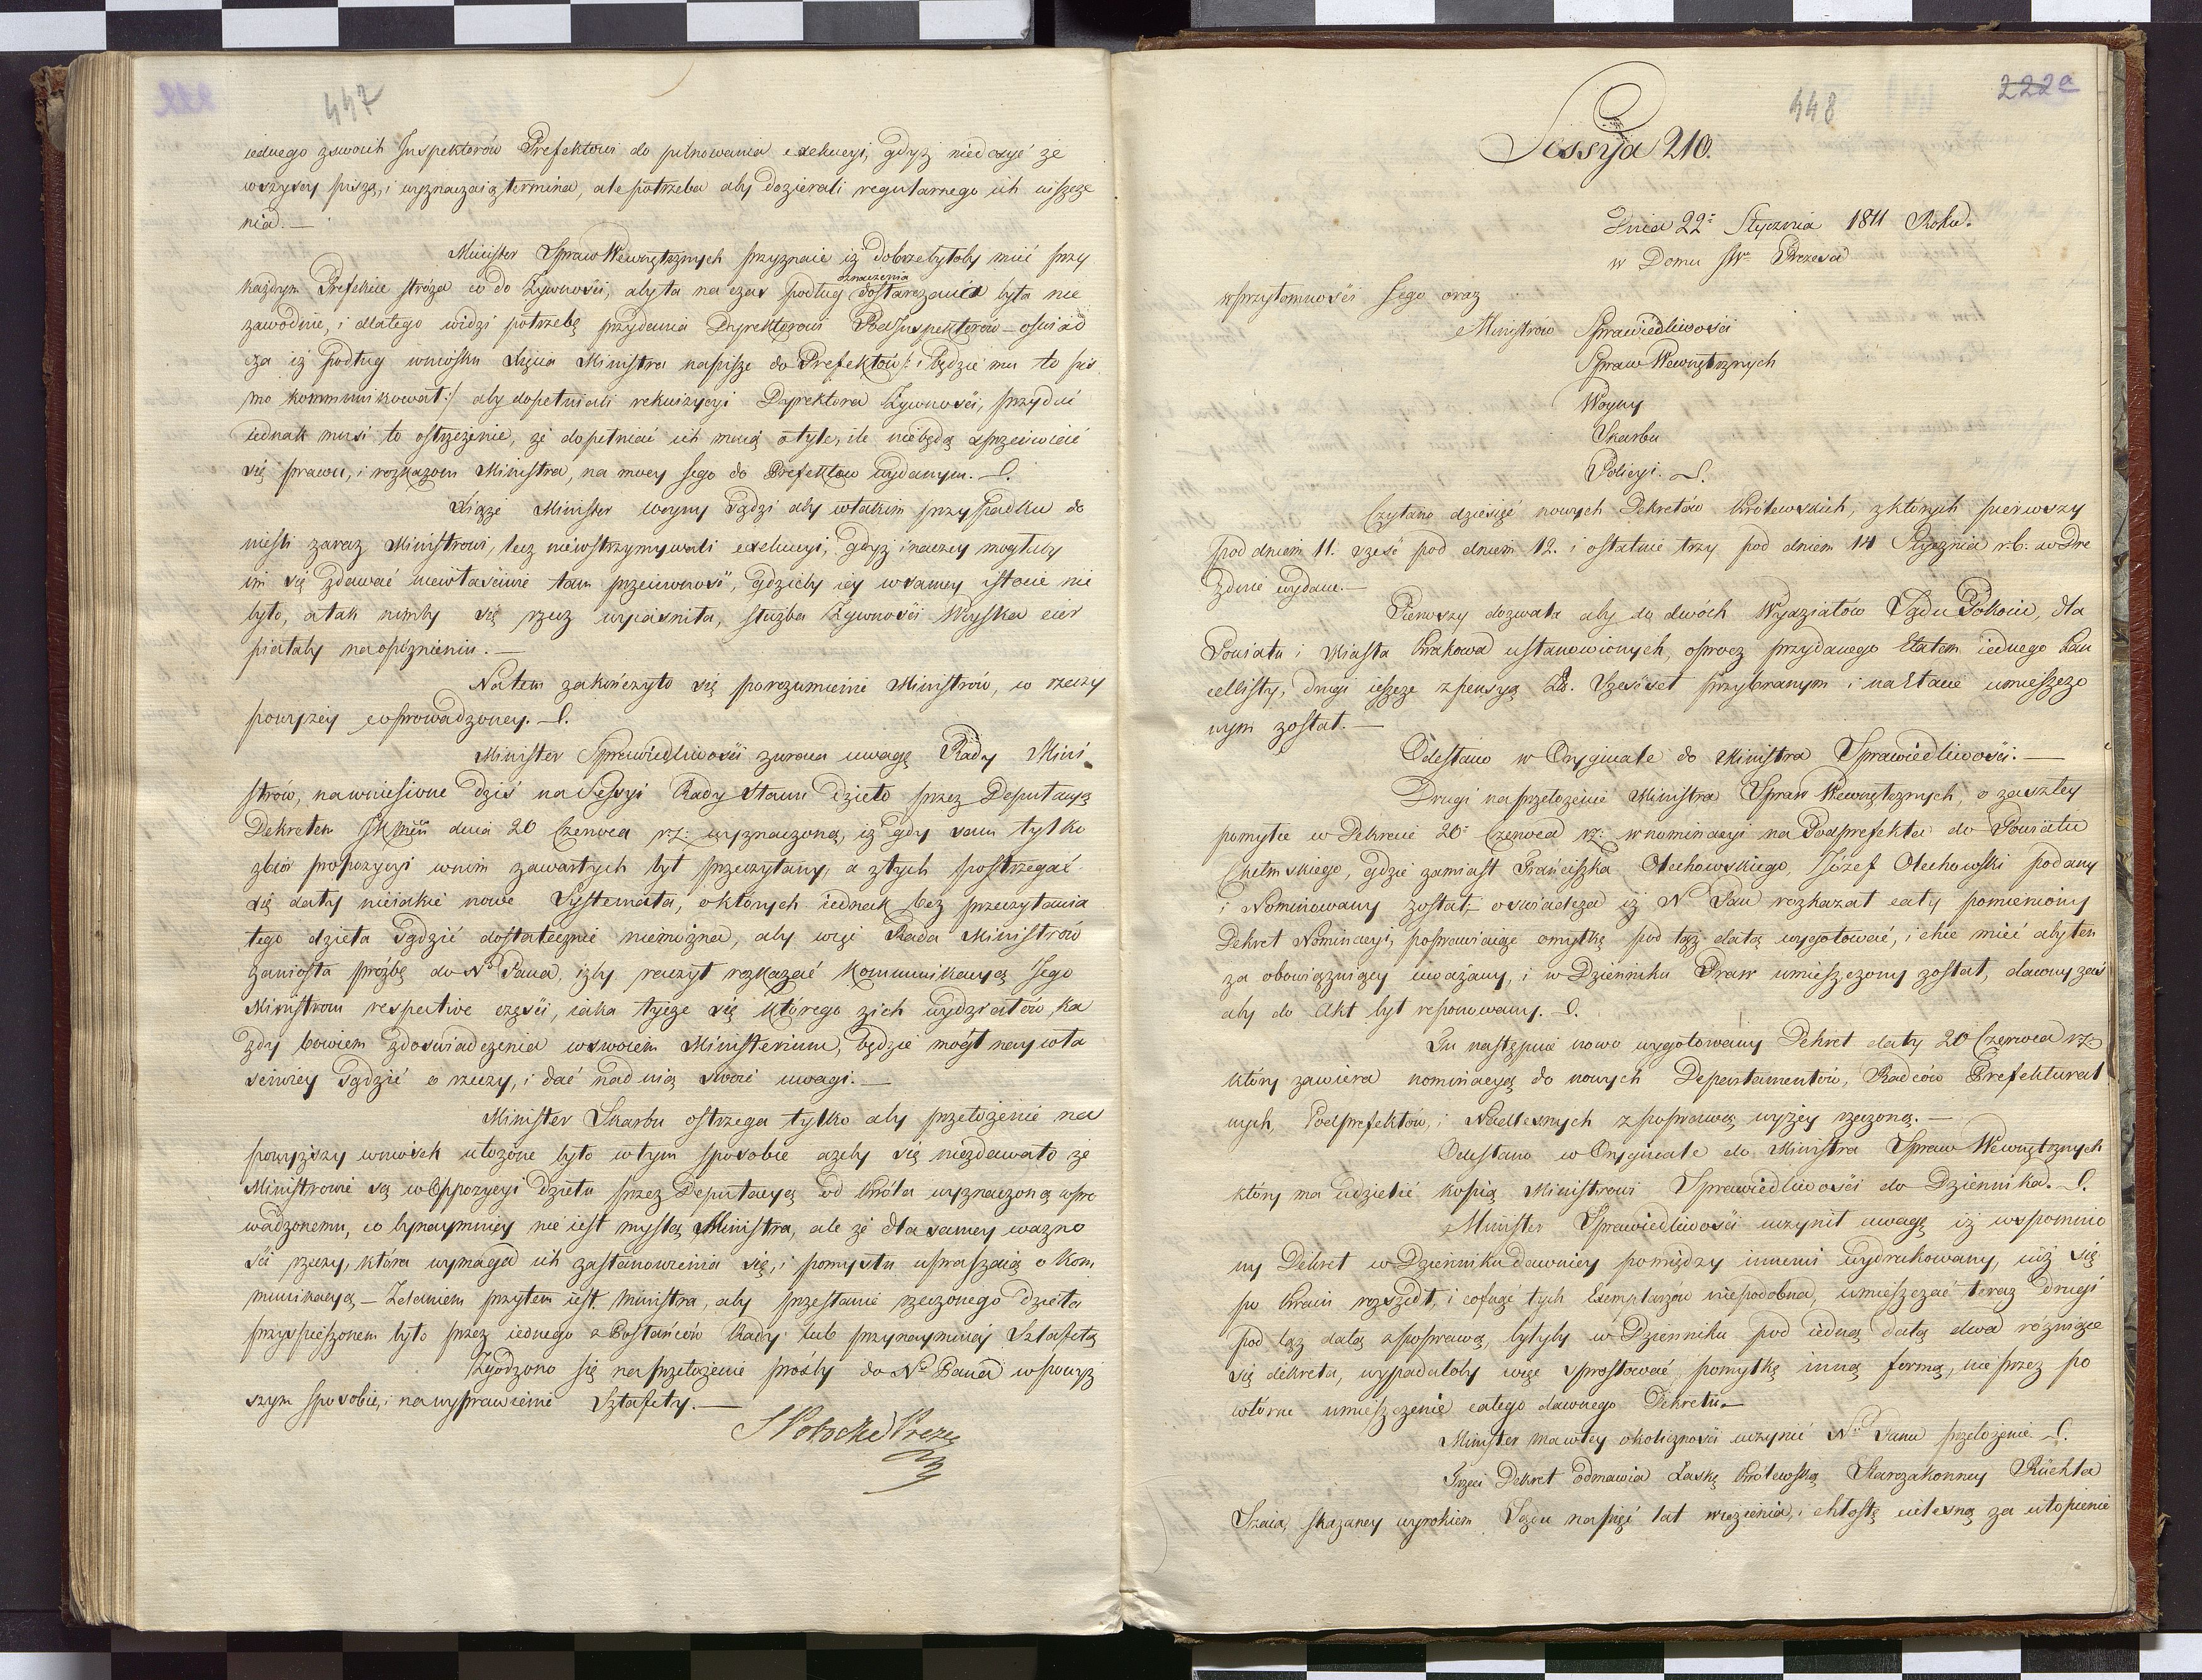 447
iednego zswoich Inspektorów Prefektowi do pilnowania exekucyi, gdyż niedosyć że
wszyscy piszą, i wyznaczaią termina, ale potrzeba aby dozierali regularnego ich uiszcze
nia. —
Minister Spraw Wewnętrznych przyznaie iż dobrzebyłoby mieć przy
każdym Prefekcie stróża co do Żywności, aby ta na czas podług oznaczenia dostarczania była nie
zawodnie, i dlatego widzi potrzebę przydania Dyrektorowi PodInspektorów – oświad
cza iż podług wniosku Xięcia Ministra napisze do Prefektów /: i będzie mu to pis
mo kommunikował :/ aby dopełniali rekwizycyi Dyrektora Żywności, przydać
iednak musi to ostrzeżenie, że dopełniać ich maią o tyle, ile niebędą sprzeciwiać
się prawu, i rozkazom Ministra, na mocy Jego do Prefektów wydanym.
Xiąże Minister woyny sądzi aby wtakim przypadku do
nieśli zaraz Ministrowi, lecz niewstrzymywali exekucyi, gdyż inaczey mogłaby
im się zdawać niewłaściwie tam przeciwność, gdzieby iey w samey istocie nie
było, a tak nimby się rzecz wyiaśniła, służba Żywności Woyska cier
piałaby na opóźnieniu. —
Na tem zakończyło się porozumienie Ministrów, w rzeczy
powyżey wprowadzoney.
Minister Sprawiedliwości zwraca uwagę Rady Mini
strów, na wniesione dziś na Sessyi Rady Stanu dzieło przez Deputacyą
Dekretem dnia 20 Czerwca r.z: wyznaczoną, iż gdy sam tylko
zbiór propozycyi wnim zawartych był przeczytany, a z tych spostrzegać
się dały nieiakie nowe Systemata, o których iednak bez przeczytania
tego dzieła sądzić dostatecznie niemożna, aby więc Rada Ministrów
zaniosła prośbę do N° Pana, iżby raczył rozkazać kommunikacyą Jego
Ministrom respective części, iaka tycze się którego z ich wydziałów, ka
żdy bowiem z doświadczenia w swoiem Ministerium, będzie mógł naywła
ściwiey sądzić o rzeczy, i dać nad nią swoie uwagi. —
Minister Skarbu ostrzega tylko aby przełożenie na
powyższy wniosek ułożone było w tym sposobie ażeby się niezdawało że
Ministrowie są w Oppozycyi dziełu przez Deputacyą od Króla wyznaczoną wpro
wadzonemu, co bynaymniey nie iest myślą Ministra, ale że dla samey ważno
ści rzeczy, która wymaga ich zastanowienia się, i pomysłu upraszaią o kom
munikacyą, – Żądaniem przytem iest Ministra, aby przesłanie rzeczonego dzieła
przyspieszonem było przez iednego z Posłańców Rady lub przynaymniey Sztafetą
Zgodzono się na przełożenie prośby do N° Pana w powyż
szym sposobie, i na wyprawienie Sztafety. —
S Potocki Prezes
448
222a
Sessya 210.
Dnia 22° Stycznia 1811 Roku.
w Domu JW° Prezesa
w przytomności Jego oraz
Ministrów Sprawiedliwości
Spraw Wewnętrznych
Woyny
Skarbu
Policyi.
Czytano dziesięć nowych Dekretów Królewskich, z których pierwszy
pod dniem 11. sześć pod dniem 12. i ostatnie trzy pod dniem 14 Stycznia r.b. w Dre
źdnie wydane. —
Pierwszy dozwala aby do dwóch Wydziałów Sądu Pokoiu, dla
Powiatu i Miasta Krakowa ustanowionych, oprócz przydanego Etatem iednego Kan
cellisty, drugi ieszcze z pensyą Zł. Sześćset przybranym i na Etacie umieszczo
nym został. —
Odesłano w Oryginale do Ministra Sprawiedliwości. —
Drugi na przełożenie Ministra Spraw Wewnętrznych, o zaszłey
pomyłce w Dekrecie 20° Czerwca r.z: w nominacyi na Podprefekta do Powiatu
Chełmskiego, gdzie zamiast Franciszka Olechowskiego, Józef Olechowski podany
i Nominowany został, – oświadcza iż N. Pan rozkazał cały pomieniony
Dekret Nominacyi, poprawiaiąc omyłkę pod tąż datą wygotować, i chce mieć aby ten
za obowiązuiący uważany, i w Dzienniku Praw umieszczony został, dawny zaś
aby do Akt był reponowany.
Tu następuie nowo wygotowany Dekret daty 20 Czerwca r.z:
który zawiera nominacyą do nowych Departamentów, Radców Prefektural
nych, Podprefektów, i Nadleśnych z poprawą wyżey rzeczoną. —
Odesłano w Oryginale do Ministra Spraw Wewnętrznych
który ma udzielić kopią Ministrowi Sprawiedliwości do Dziennika.
Minister Sprawiedliwości uczynił uwagę iż wspomnio
ny Dekret w Dzienniku dawniey pomiędzy innemi wydrukowany, iuż się
po Kraiu rozszedł, i cofnąć tych Exemplarzów niepodobna, umieszczać teraz drugi
pod tąż datą z poprawą, byłyby w Dzienniku pod iedną datą dwa różniące
się dekreta, wypadałoby więc sprostować pomyłkę inną formą, nie przez po
wtórne umieszczenie całego dawnego Dekretu. —
Minister ma w tey okoliczności uczynić N° Panu przełożenie.
Trzeci Dekret odmawia Łaskę Królewską Starozakonney Ruchla
Szaia, skazaney wyrokiem Sądu na pięć lat więzienia, i chłostę cielesną za utopienie